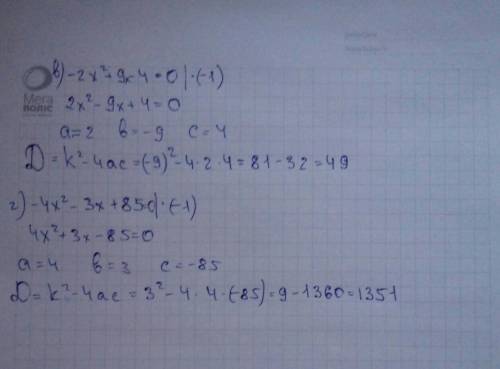 в) -2x²+9x-4=0|·(-1)
Мега
поліс
2x²-9x+4=0
a=2 b=-9 c=4
D=k²-4ac=(-9)²-4·2·4=81-32=49
г) -4x²-3x+85=0|·(-1)
4x²+3x-85=0
a=4 b=3 c=-85
D=k²-4ac=3²-4·4·(-85)=9-1360=1351